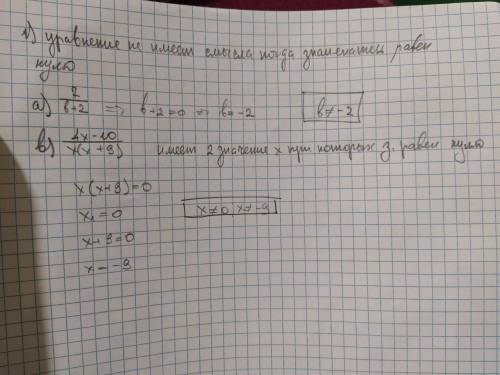 1) уравнение не имеет смысла когда знаменатель равен
нулю
а) 7/b+2 => b+2=0 => b=-2 b≠-2
в) 2x-10/x(x+9) имеет 2 значения x при которых з. равен нулю
x(x+9)=0
x₁=0 x≠0, x≠-9
x+9=0
x=-9